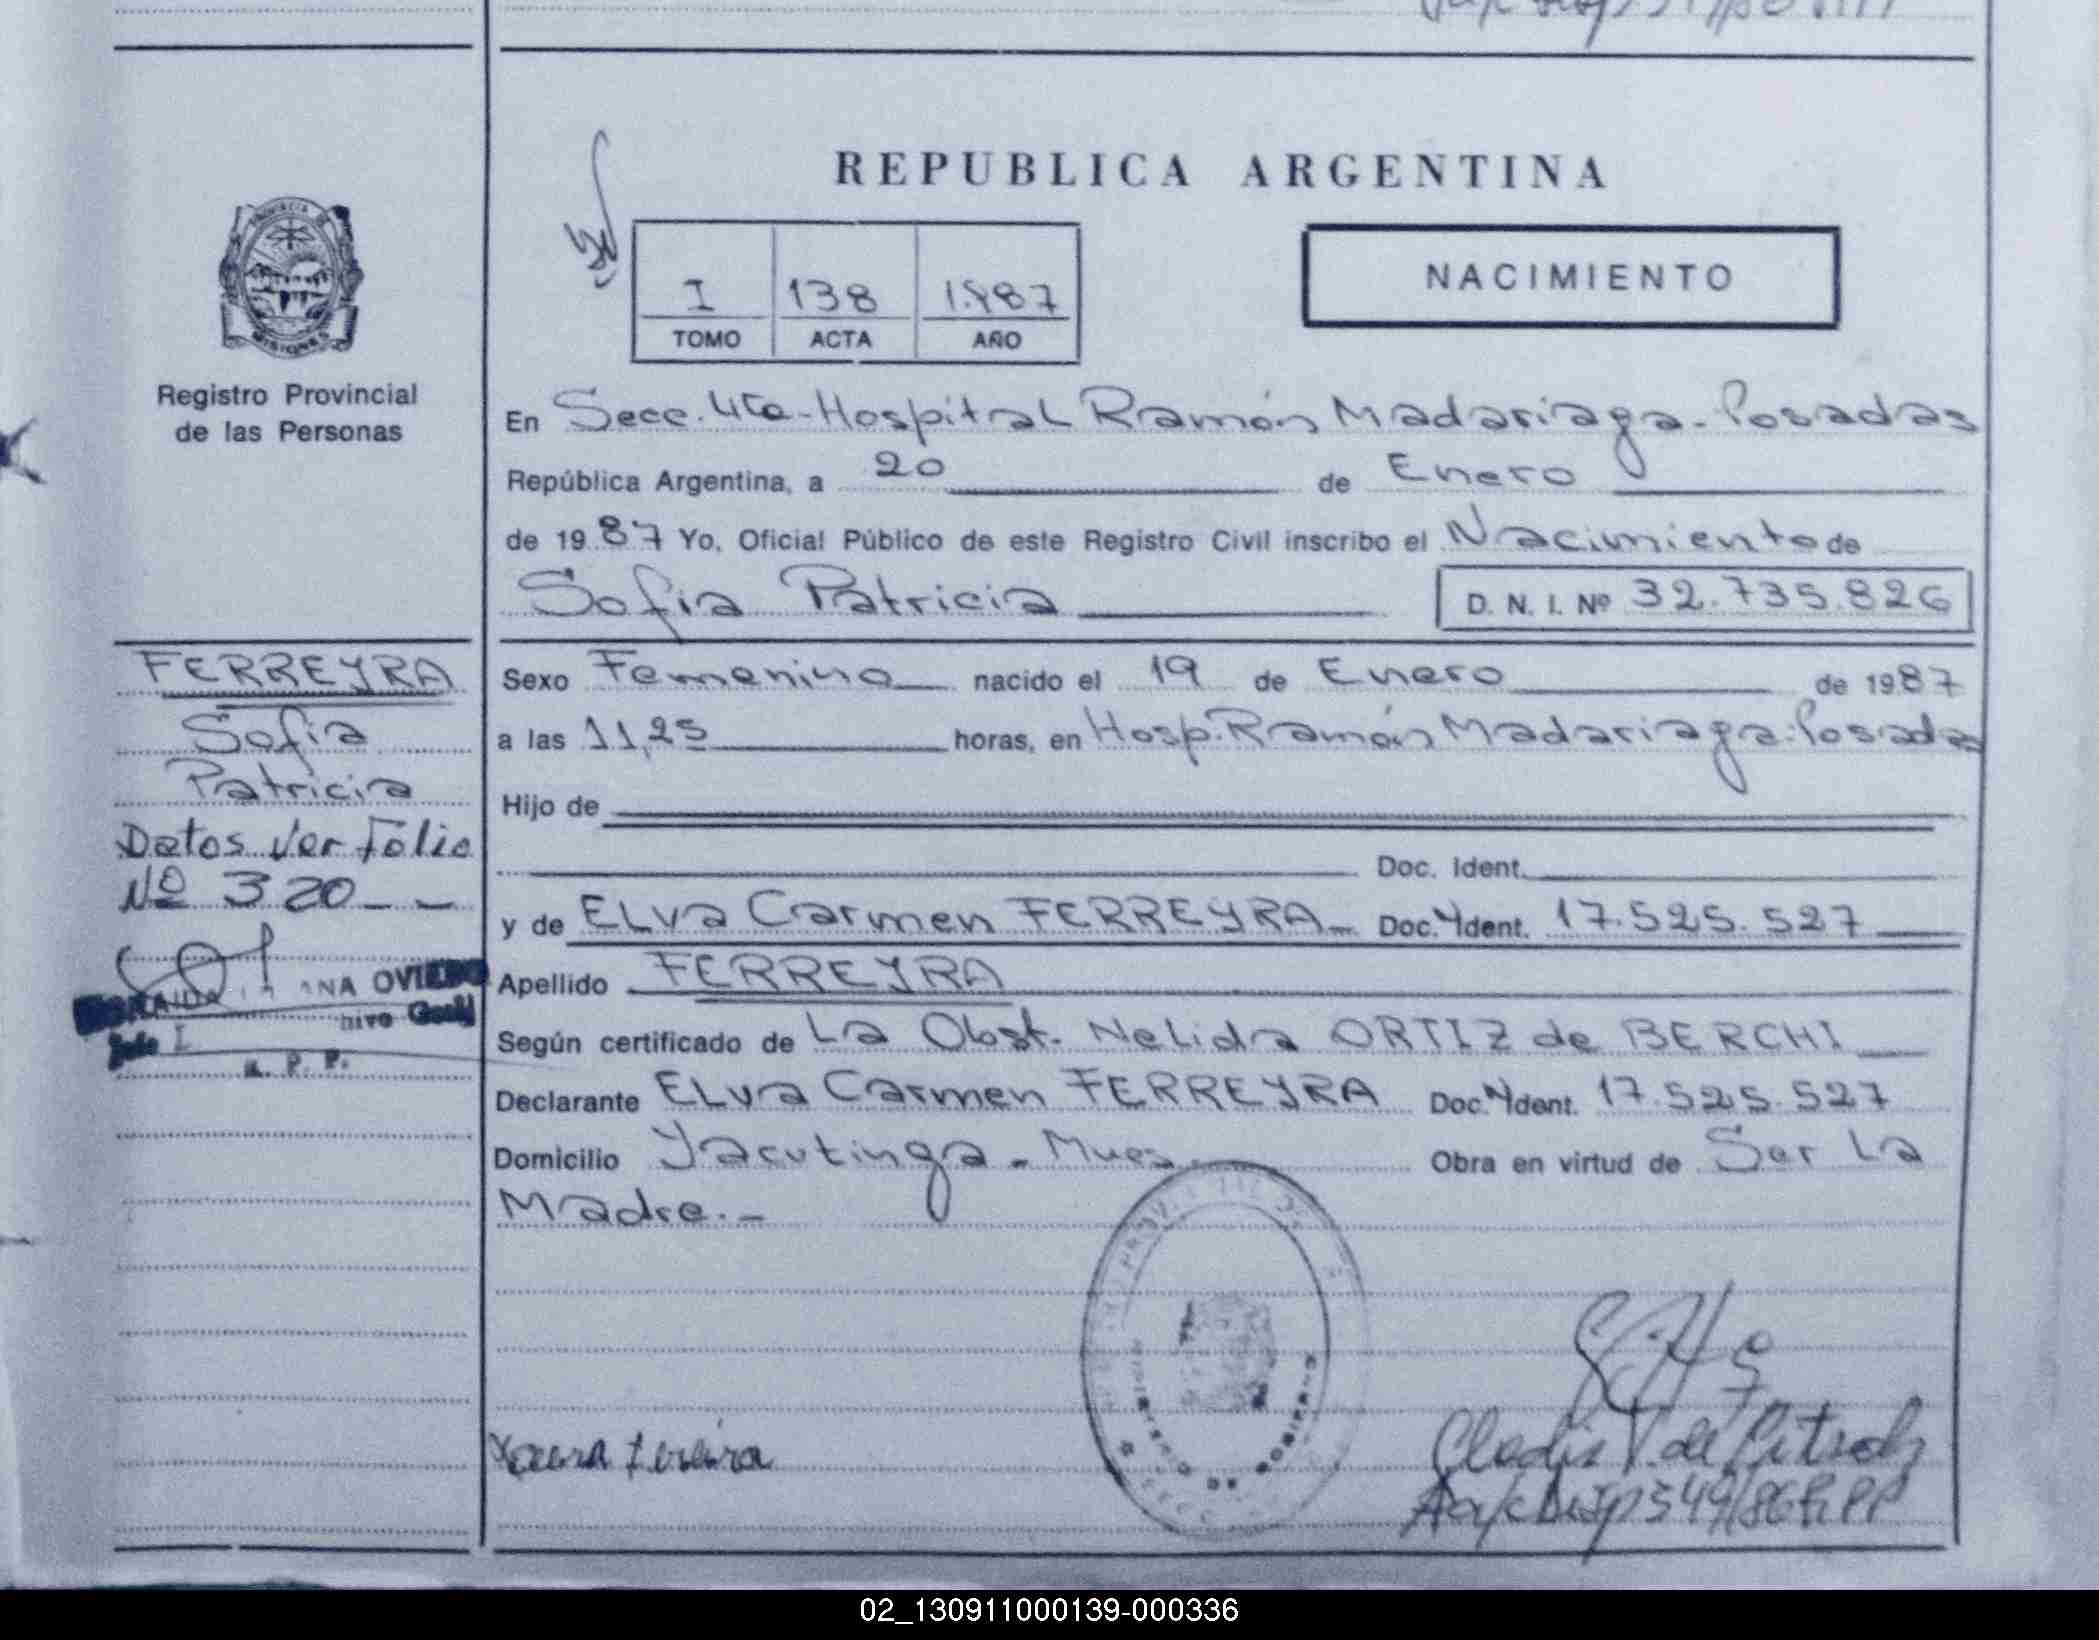 REPUBLICA ARGENTINA
PROVINCIA DE
MISIONES
Registro Provincial
de las Personas
I 138 1.987
TOMO ACTA AÑO
NACIMIENTO
En Secc. 4ta-Hospital Ramón Madariaga-Posadas
República Argentina, a 20 de Enero
de 1987 Yo, Oficial Público de este Registro Civil inscribo el Nacimiento de
Sofia Patricia D. N. I. Nº 32.735.826
FERREYRA
Sofia
Patricia
Datos Ver Folio
Nº 320 - -
ANA OVIEDO
Jefe
R. P. P.
Sexo Femenino nacido el 19 de Enero de 1987
a las 11,25 horas, en Hosp. Ramón Madariaga-Posadas
Hijo de
Doc. Ident.
y de ELva Carmen FERREYRA Doc. Ident. 17.525.527
Apellido FERREYRA
Según certificado de La Obst. Nelida ORTIZ de BERCHI
Declarante ELva Carmen FERREYRA Doc. Ident. 17.525.527
Domicilio Yacutinga - Mnes. Obra en virtud de Ser La
Madre.-
02_130911000139-000336